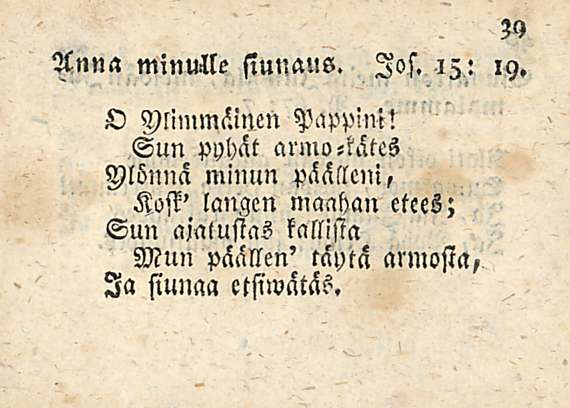 39
Anna minulle siunaus. Jos. 15: 19.
O Ylimmäinen Pappini!
Sun pyhät armo-kätes
Ylönnä minun päälleni,
Kosk' langen maahan etees;
Sun ajatustas kallista
Mun päällen' täytä armosta,
Ja siunaa etsiwätäs.